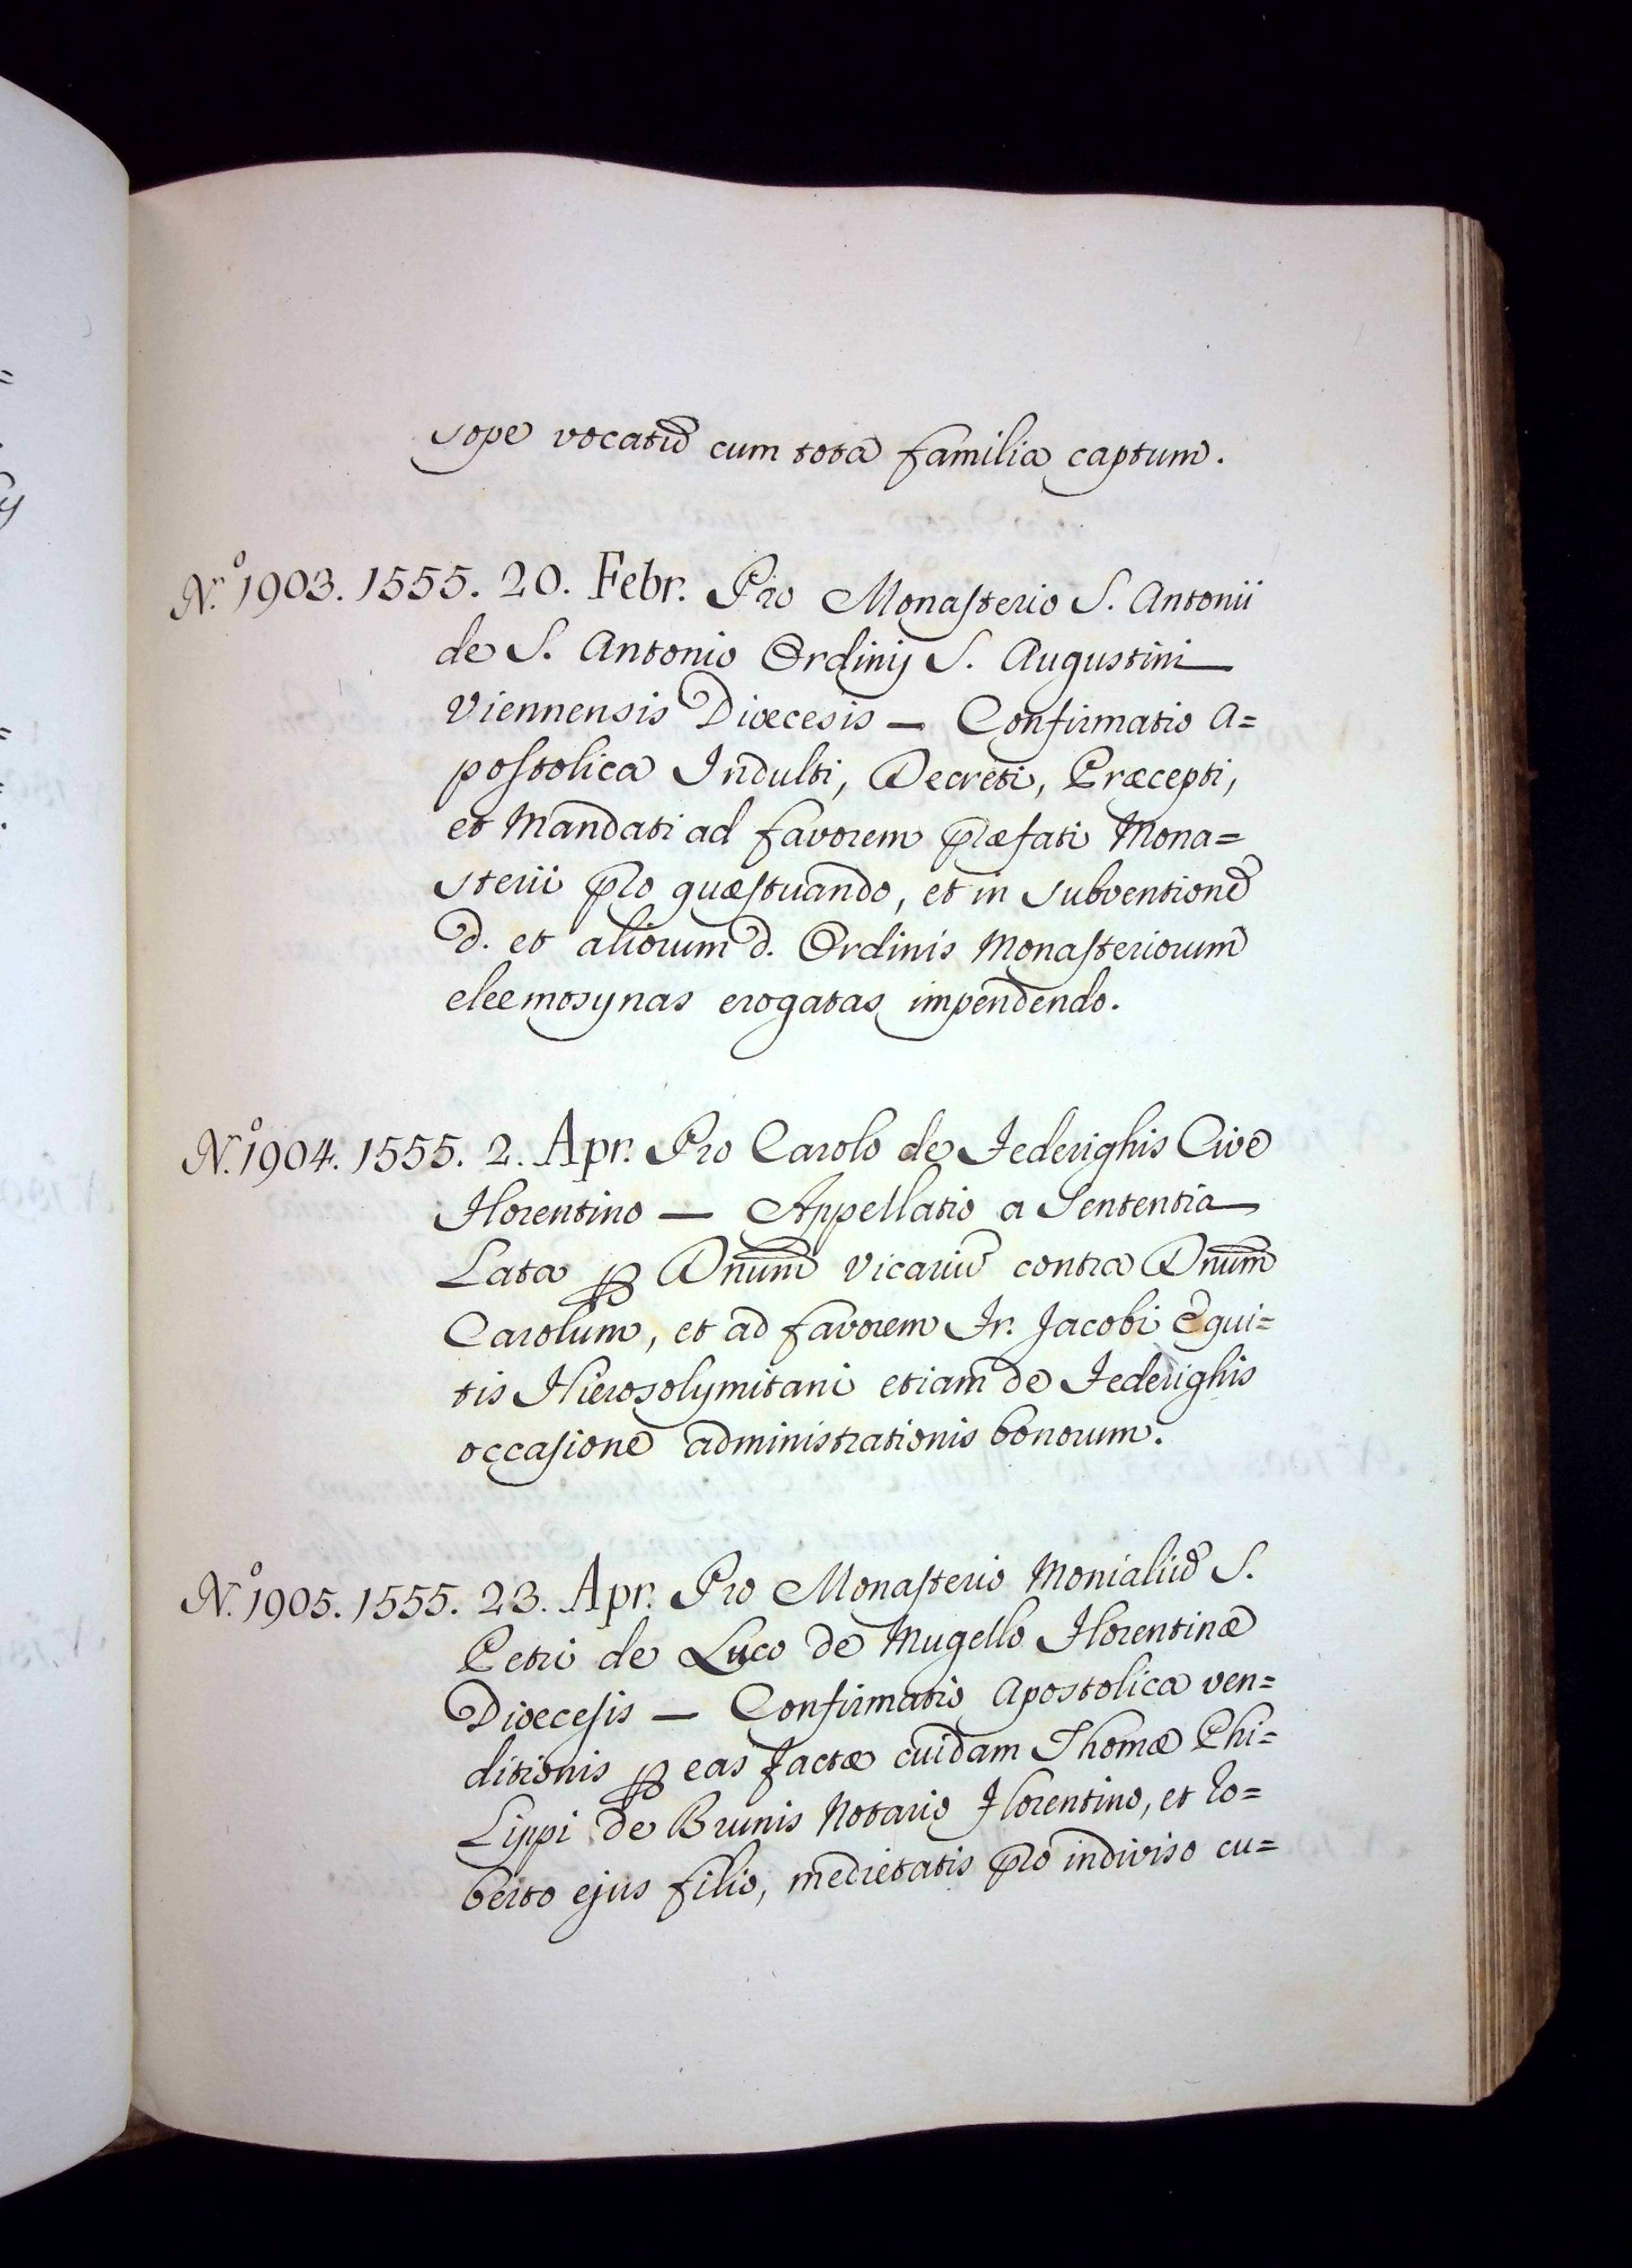 sope vocatū cum tota familia captum.
N.º 1903. 1555. 20. Febr. Pro Monasterio S. Antonii
de S. Antonio Ordinis S. Augustini
Viennensis Diœcesis — Confirmatio A=
postolica Indulti, Decreti, Præcepti,
et Mandati ad favorem præfati Mona=
sterii pro quæstuando, et in subventionē
d. et aliorum d. Ordinis Monasteriorum
eleemosynas erogatas impendendo.
N.º 1904. 1555. 2. Apr. Pro Carolo de Federighis Cive
Florentino — Appellatio a Sententia
Lata ꝑ Dnūm Vicariū contra Dnūm
Carolum, et ad favorem Fr. Jacobi Equi=
tis Hierosolymitani etiam de Federighis
occasione administrationis bonorum.
N.º 1905. 1555. 23. Apr. Pro Monasterio Monialiū S.
Petri de Luco de Mugello Florentinæ
Diœcesis — Confirmatio Apostolica ven=
ditionis ꝑ eas factæ cuidam Thomæ Phi=
Lippi de Brunis Notario Florentino, et Ro=
berto ejus filio, medietatis pro indiviso cu=